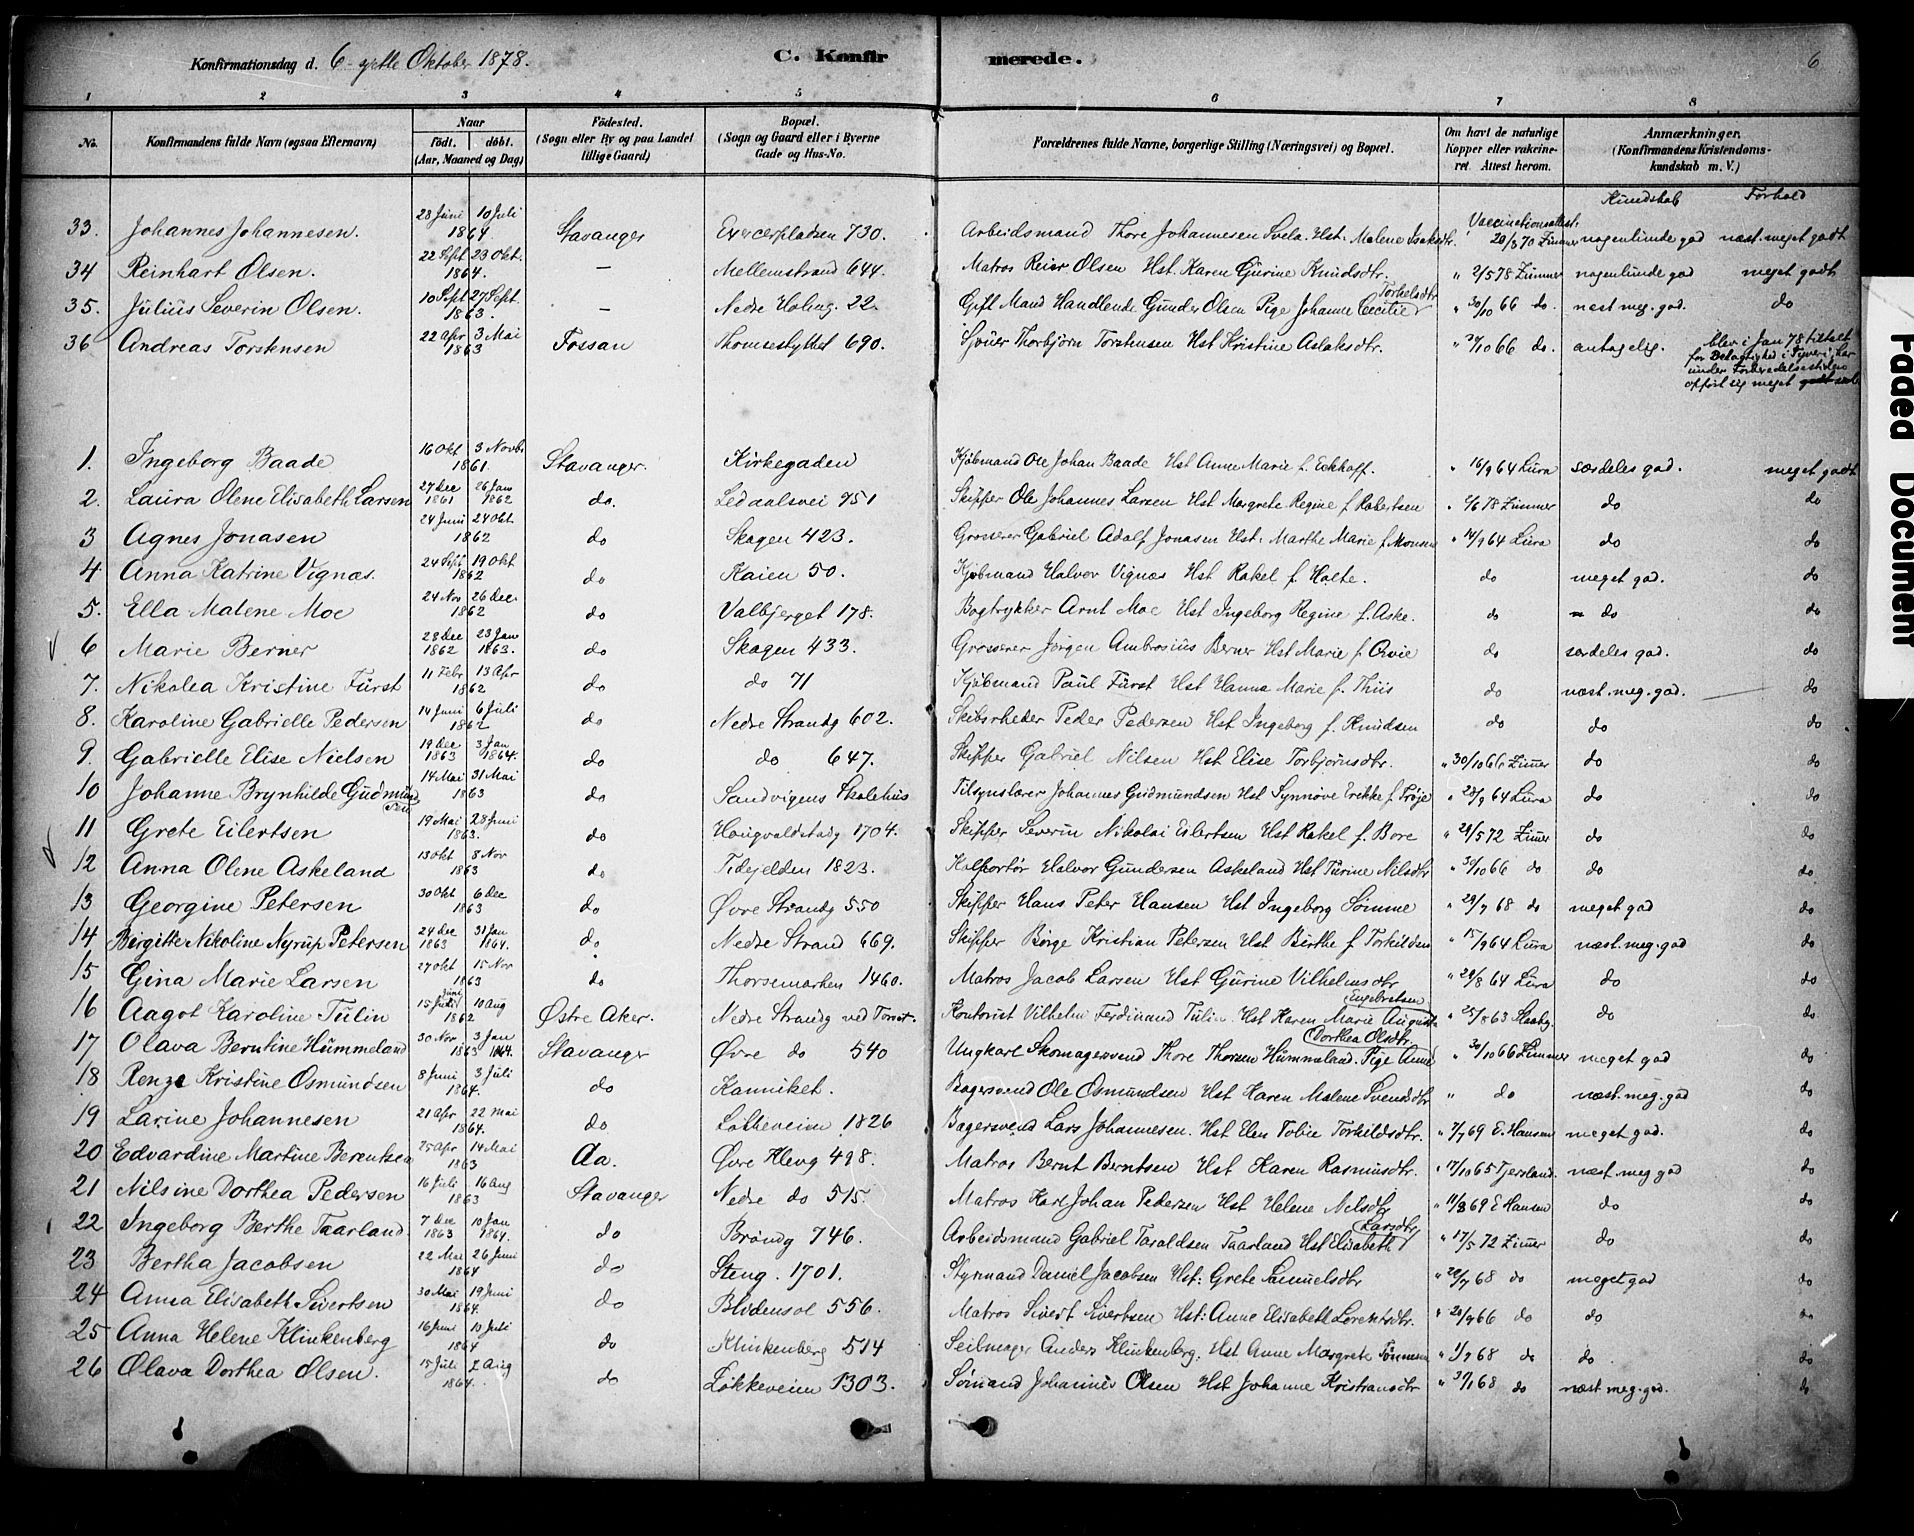 Konfirmationsdag d. 6-gette Oktober 1878. C. Konfirmerede. 6
1 2 3 4 5 6 7 8
No. Konfirmandens fulde Navn (ogsaa Efternavn) Naar Født. døbt. (Aar, Maaned og Dag) Fødested. (Sogn eller By og paa Landet tillige Gaard) Bopæl. (Sogn og Gaard eller i Byerne Gade og Hus-No. Forældrenes fulde Navne, borgerlige Stilling (Næringsvei) og Bopæl. Om havt de naturlige Kopper eller vakcineret Attest herom. Anmærkninger. (Konfirmandens Kristendomskundskab m. V.)
Kundskab Forhold
33. Johannes Johannesen. 28 Juni 1864 10 Juli Stavanger Exercerpladsen 730. Arbeidsmand Thore Johannesen Svela. Hst. Malene Isaksdtr. Vaccinationsattest 20/3 70 Zimmer nogenlunde god næst. meget godt
34 Reinhart Olsen. 22 Sept 1864. 23 Okt. — Mellemstrand 644. Matros Reier Olsen Hst. Karen Gurine Knudsdtr. " 2/5 78 Zimmer nogenlunde god meget godt
35. Julius Severin Olsen. 10 Sept 1863. 27 Sept. — Nedre Holvg. 22. Gift Mand Handlende Gunder Olsen Pige Johanne Cecilie Torkelsdtr " 30/10 66 do. næst meg. god. do
36 Andreas Torstensen 22 Apr 1863 3 Mai Fossan Thomsestyttet 690. Sjouer Thorbjørn Torstensen Hst Kristine Aslaksdtr. " 30/10 66 do. antagelig. blev i Jan 78 tiltalt for Delagtighed i Tyveri, har under Forberedelsestiden opført sig meget godt
1. Ingeborg Baade 16 Okt 1861. 3 Novb. Stavanger. Kirkegaden Kjøbmand Ole Johan Baade Hst Anne Marie f. Eckhoff. " 16/9 64 Lura særdeles god. meget godt
2. Laura Olene Elisabeth Larsen 27 Dec 1861 26 Jan 1862 do. Ledaalsvei 751 Skipper Ole Johannes Larsen Hst Margrete Regine f. Robertsen " 6/6 78 Zimmer do do
3 Agnes Jonasen 24 Juni 1862 24 Okt do Skagen 423. Grosserer Gabriel Adolf Jonasen Hst. Marthe Marie f. Monsen " 14/9 64 Lura do do
4 Anna Katrine Vignæs. 24 Sept 1862 19 Okt do Kaien 50. Kjøbmand Halvor Vignæs Hst Rakel f. Holte. do meget god. do
5. Ella Malene Moe 24 Nov 1862 26 Dec. do Valbjerget 178. Bogtrykker Arnt Moe Hst Ingeborg Regine f. Aske. do do do
6 Marie Berner 28 Dec 1862 23 Jan 1863. do Skagen 433. Grosserer Jørgen Ambrosius Berner Hst Marie f. Qvie do særdeles god. do
7. Nikolea Kristine Fürst 11 Febr 1862 13 Apr do do 71 Kjøbmand Paul Fürst Hst Hanna Marie f. Thiis do næst. meg. god. do
8. Karoline Gabrielle Pedersen 14 Juni 1862 6 Juli do Nedre Strandg 602. Skibsrheder Peder Pedersen Hst Ingeborg f. Knudsen do do do
9. Gabrielle Elise Nielsen 19 Dec 1863 3 Jan 1864. do do 647. Skipper Gabriel Nilsen Hst Elise Torbjørnsdtr. " 30/10 66 Zimer do do
10 Johanne Brynhilde Gudmundsen 14 Mai 1863 31 Mai do Sandvigens Skolehus Tilsynslærer Johannes Gudmundsen Hst Synnøve Erekke f. Frøje " 28/9 64 Lura do do
11 Grete Eilertsen 19 Mai 1863. 28 Juni do Haugvaldstadg 1704. Skipper Severin Nikolai Eilertsen Hst Rakel f. Bore " 29/5 72 Zimer do do
12 Anna Olene Askeland 13 Okt 1863 8 Nov do Tidejelden 1823. Kolportør Halvor Gundersen Askeland Hst Turine Nilsdtr " 30/10 66 do do do
13 Georgine Petersen 30 Okt 1863 6 Dec do Øvre Strandg 550 Skipper Hans Peter Hansen Hst Ingeborg Sømme " 29/7 68 do meget god do
14 Birgitte Nikoline Nyrup Petersen 24 Dec 1863 31 Jan 1864. do Nedre Strand 669. Skipper Børge Kristian Petersen Hst Birthe f Torkildsen " 15/9 64 Lura næst. meg. god do
15 Gina Marie Larsen 27 Okt 1863 15 Nov do Thorsemarken 1460. Matros Jacob Larsen Hst Gurine Vilhelmsdtr " 29/8 64 Lura do do
16 Aagot Karoline Tulin 15 Juni 1862 10 Aug Østre Aker. Nedre Strandg ved Torvet. Kontorist Vilhelm Ferdinand Tulin Hst Karen Marie Augusta Engebretsen " 25/8 63 do do
17 Olava Berntine Hummeland 30 Nov 1863 3 Jan 1864. Stavanger Øvre do 540 Ungkarl Skomagersvend Thore Thorsen Hummeland. Pige Anne Dorthea Olsdtr. " 30/10 66 Zimmer meget god do
18 Renze Kristine Osmundsen 8 Juni 1864. 3 Juli do Kanniket. Bagersvend Ole Osmundsen Hst Karen Malene Svendsdtr " do næst. meg. god do
19 Larine Johannesen 21 Apr 1864. 22 Mai do Løkkeveien 1826 Bagersvend Lars Johannesen. Hst Elen Tobie Torkildsdtr. " 7/7 69 E. Hansen meget god. do
20 Edvardine Martine Berentsen 25 Apr 1863 14 Mai Aa. Øvre Klevg 498. Matros Bernt Berntsen Hst Karen Rasmusdtr. " 17/10 65 Tjersland næst. meg god do
21 Nilsine Dorthea Pedersen 16 Juli 1863 16 Aug Stavanger Nedre do 515. Matros Karl Johan Pedersen Hst Helene Nilsdtr " 11/8 69 E Hansen do do
22 Ingeborg Berthe Taarland. 7 Dec 1863 10 Jan 1864. do Brøndg 746. Arbeidsmand Gabriel Taraldsen Taarland Hst Elisabeth Larsdtr " 17/5 72 Zimer do do
23 Bertha Jacobsen 22 Mai 1864 26 Juni do Steng. 1701. Styrmand Daniel Jacobsen Hst: Grete Samuelsdtr " 29/7 68 do meget god do
24 Anna Elisabeth Sivertsen 30 Mai 1864. 19 Juni do Blidensol 556. Matros Sivert Sivertsen Hst: Anne Elisabeth Lorentsdtr. " 20/9 66 do do do
25 Anna Helene Klinkenberg 16 Juni 1864 10 Juli do Klinkenberg 514 Seilmager Anders Klinkenberg. Hst Anne Margrete Tønnesen " 1/7 68 do do do
26 Olava Dorthea Olsen. 15 Juli 1864. 7 Aug do Løkkeveien 1303. Sømand Johannes Olsen Hst Johanne Kristiansdtr " 31/1 68 do næst meg. god. do
Faded Document